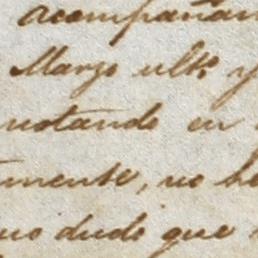 acompañan
Marzo ulto y
notando en
mente, no he
no dudo que